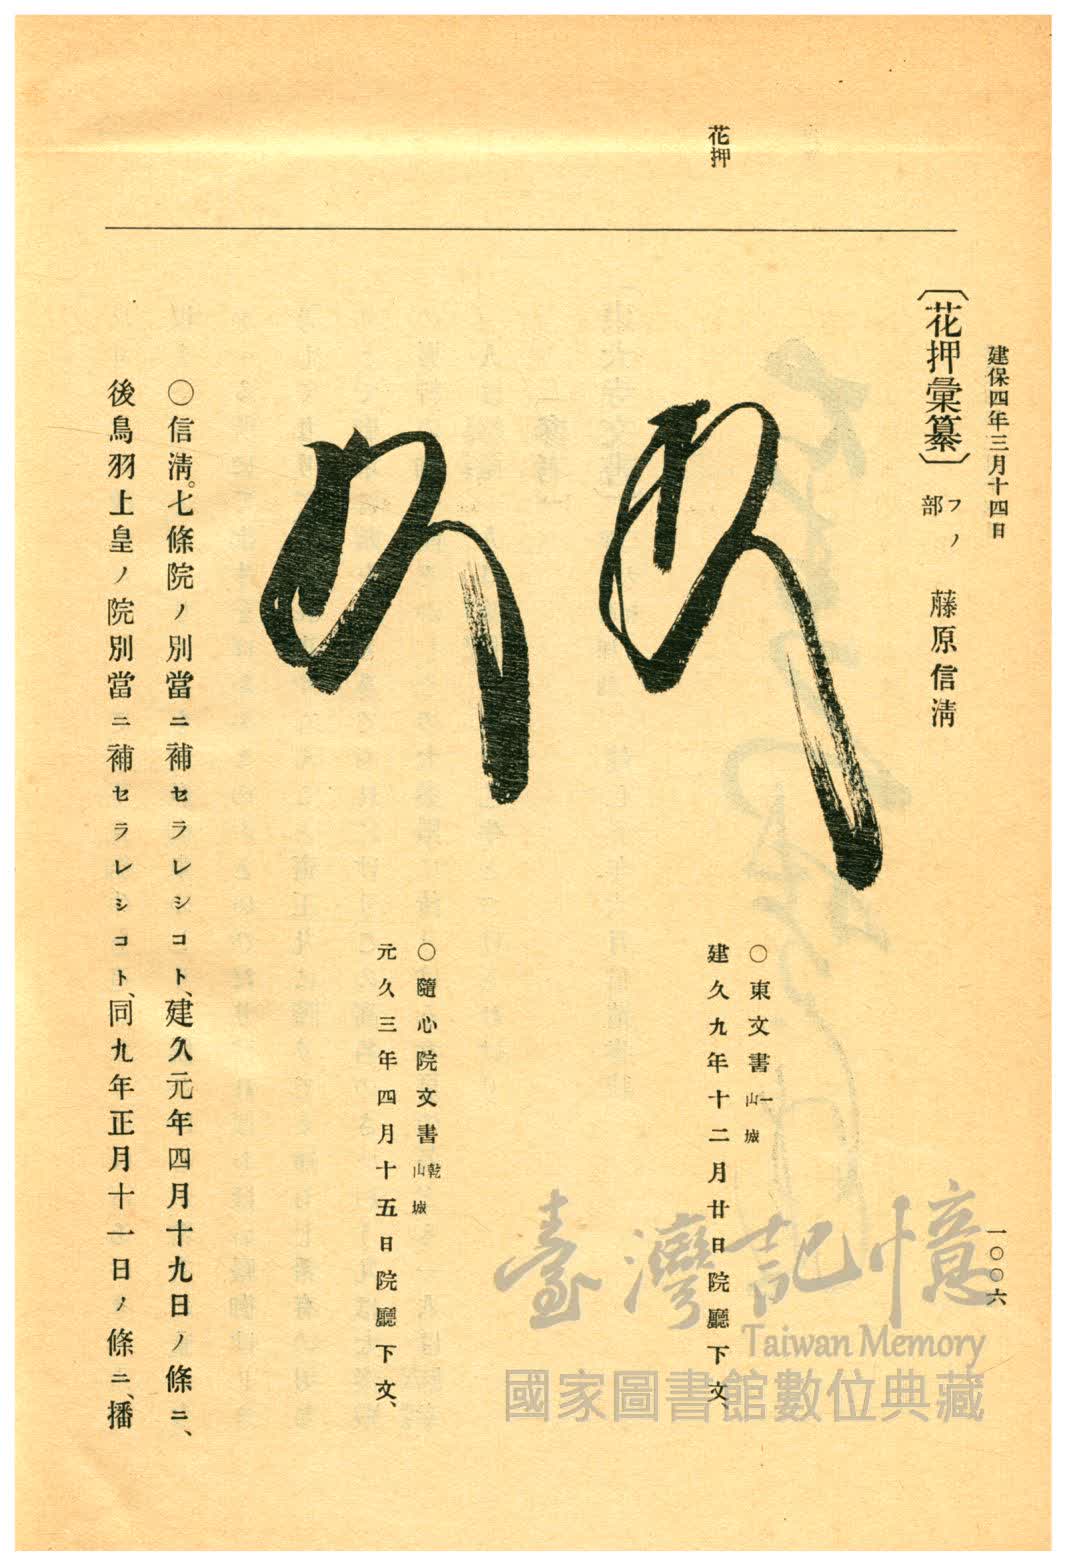 花押
建保四年三月十四日
一〇〇六
〔花押彙纂〕フノ部 藤原信淸
〇東文書一山城
建久九年十二月廿日院廳下文、
〇隨心院文書乾山城
元久三年四月十五日院廳下文、
〇信淸。七條院ノ別當ニ補セラレシコト、建久元年四月十九日ノ條ニ、
後鳥羽上皇ノ院別當ニ補セラレシコト、同九年正月十一日ノ條ニ、播
臺灣記憶
Taiwan Memory
國家圖書館數位典藏